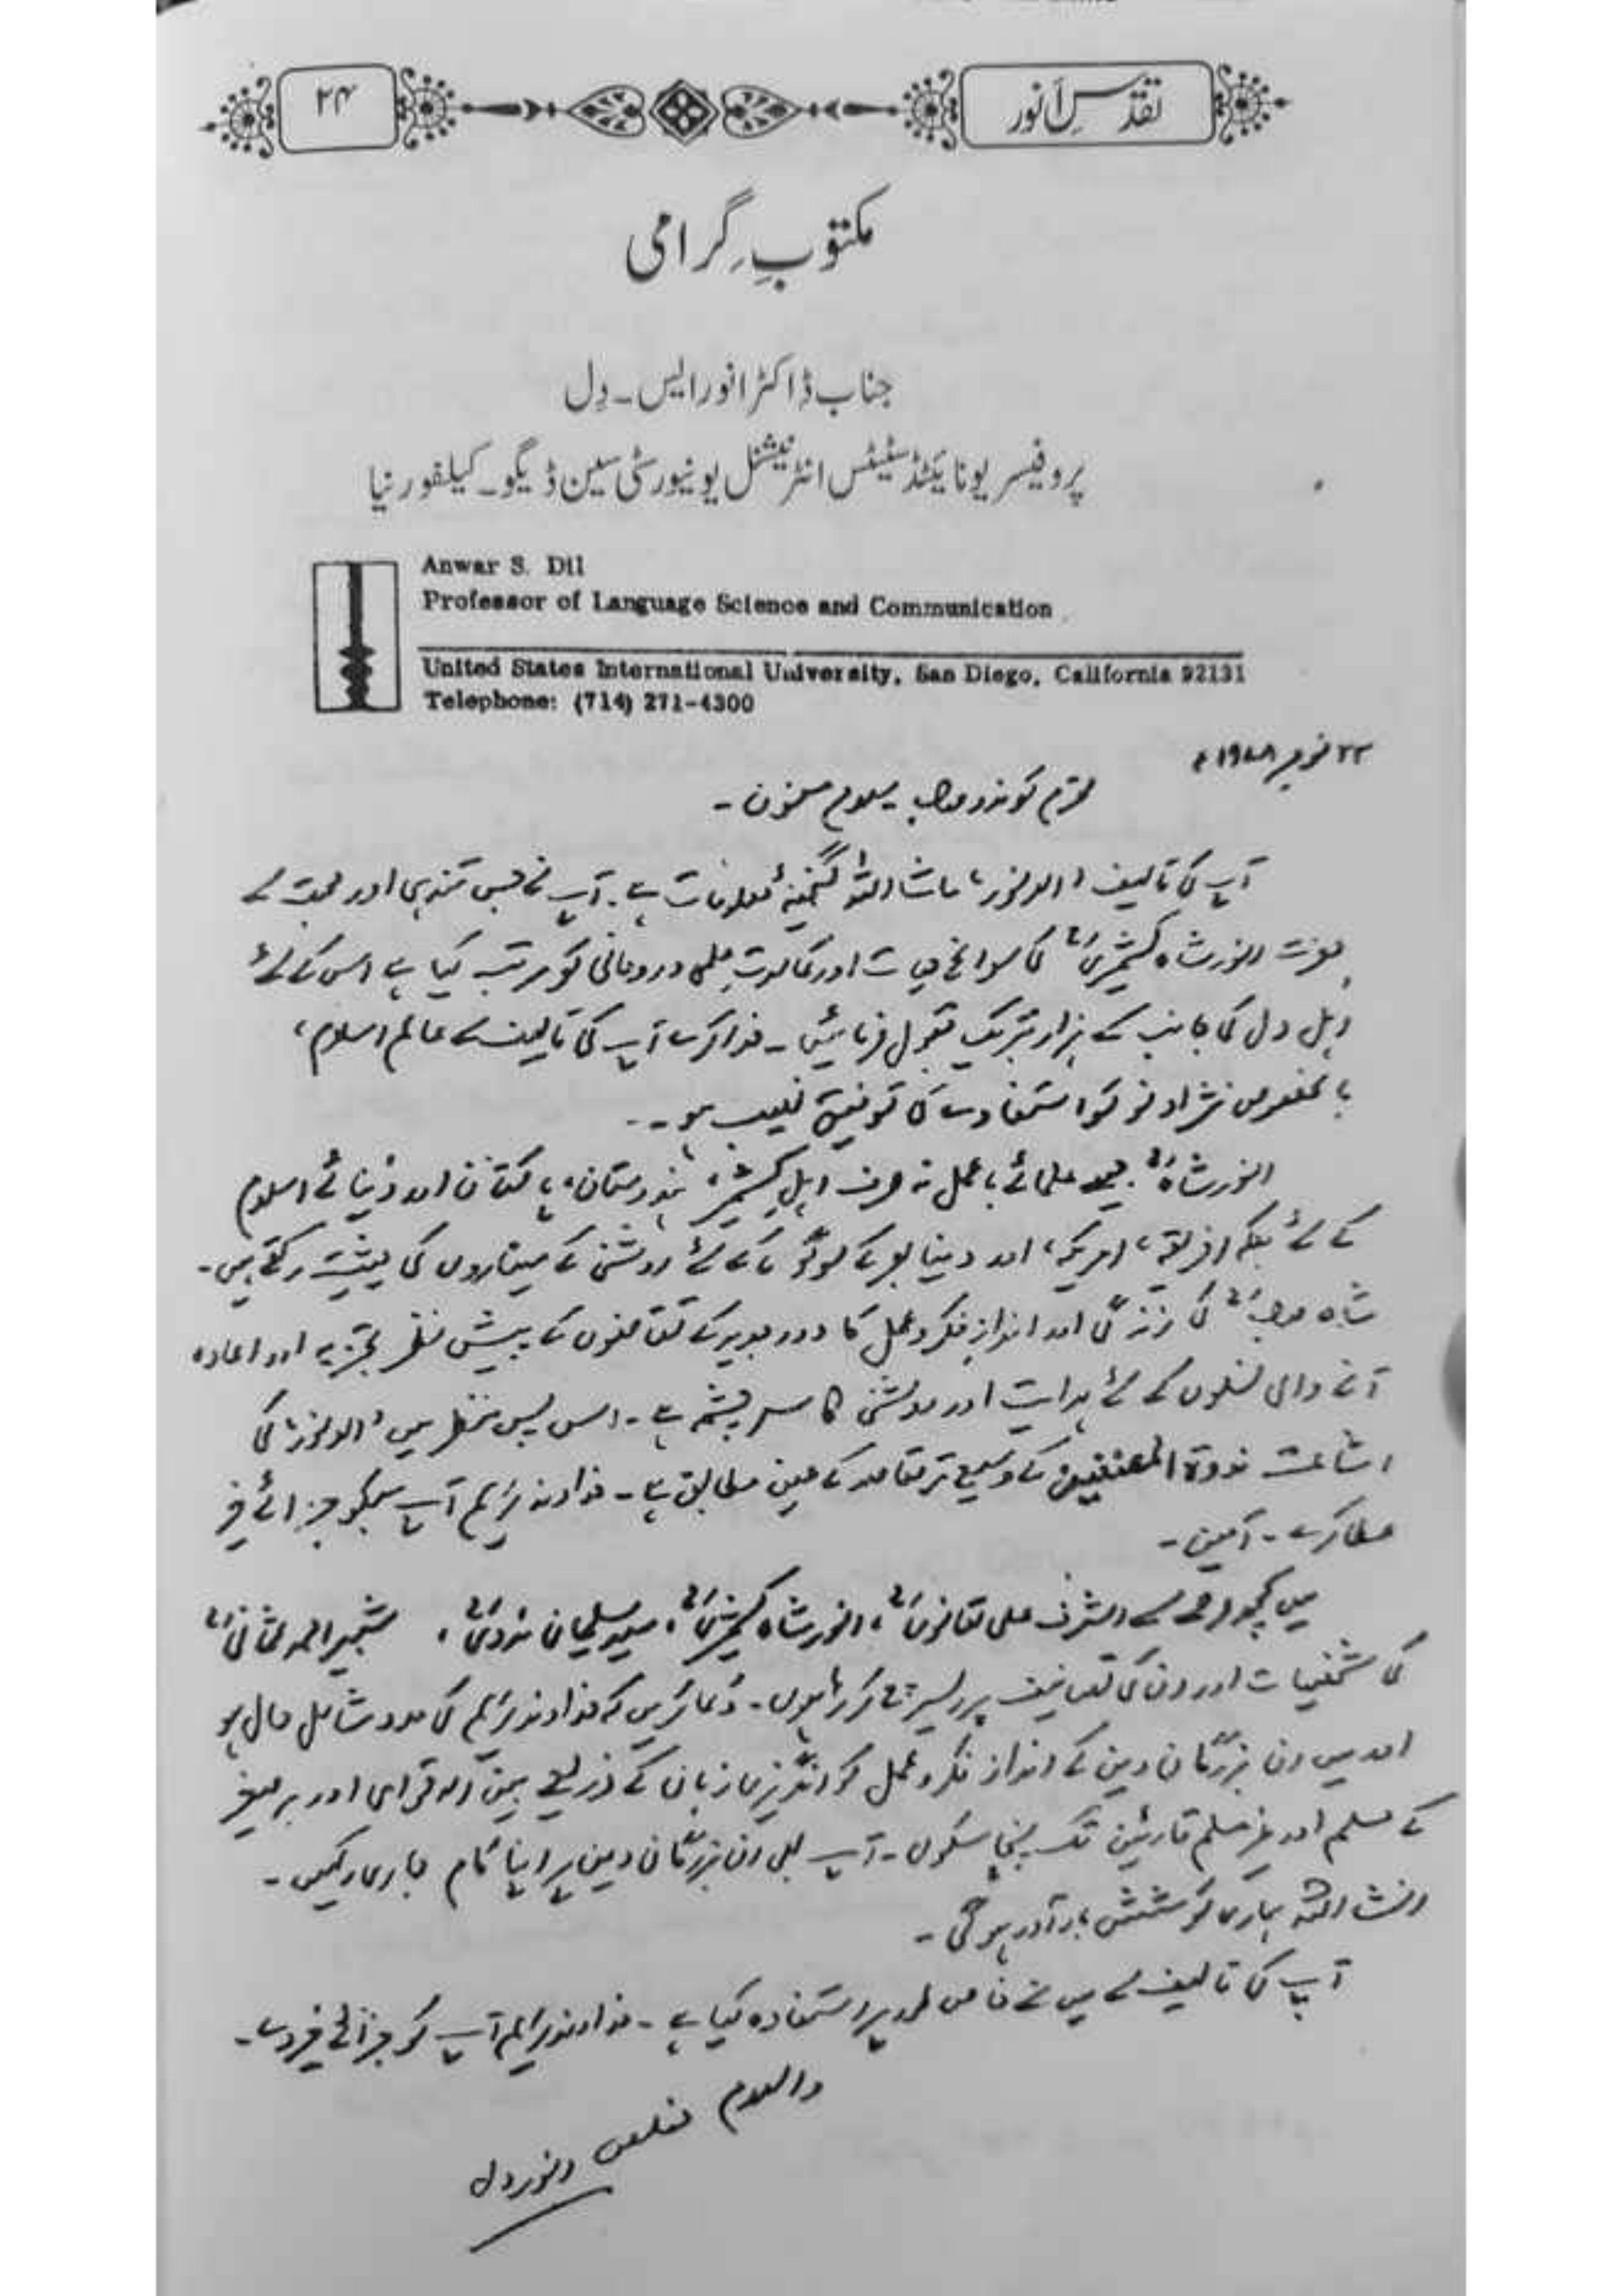 تقدیسِ انور
۲۴
مکتوبِ گرامی
جناب ڈاکٹر انور ایس۔ دِل
پروفیسر یونائیٹڈ سٹیٹس انٹرنیشنل یونیورسٹی سین ڈیگو۔ کیلیفورنیا
Anwar S. Dil
Professor of Language Science and Communication
United States International University, San Diego, California 92131
Telephone: (714) 271-4300
۲۲ نومبر ۱۹۷۸ء
محترم کوندو صاحب سلام مسنون۔
آپ کی تالیف "الانور" ماشاءاللہ گنجینۂ معلومات ہے۔ آپ نے جس تندہی اور محبت سے
حضرت انور شاہ کشمیریؒ کی سوانح حیات اور کمالات علمی و روحانی کو مرتب کیا ہے اس کے لئے
اہل دل کی جانب سے ہزار تبریک قبول فرمائیں۔ خدا کرے آپ کی تالیف سے عالم اسلام،
بالخصوص نژاد نو کو استفادے کی توفیق نصیب ہو۔
انور شاہؒ جیسے علمائے باعمل نہ صرف اہل کشمیر، ہندوستان، پاکستان اور دُنیائے اسلام
کے لئے بلکہ افریقہ، امریکہ، اور دنیا بھر کے لوگوں کے لئے روشنی کے میناروں کی حیثیت رکھتے ہیں۔
شاہ صاحبؒ کی زندگی اور اندازِ فکر و عمل کا دور جدید کے تقاضوں کے پیش نظر تجزیہ اور اعادہ
آنے والی نسلوں کے لئے ہدایت اور روشنی کا سرچشمہ ہے۔ اس پس منظر میں "الانور" کی
اشاعت ندوۃ المصنفین کے وسیع تر مقاصد کے عین مطابق ہے۔ خداوند کریم آپ سبکو جزائے خیر
عطا کرے۔ آمین۔
میں کچھ عرصے سے اشرف علی تھانویؒ، انور شاہ کشمیریؒ، سید سلیمان ندویؒ، شبیر احمد عثمانیؒ
کی شخصیات اور ان کی تصانیف پر ریسرچ کر رہا ہوں۔ دُعا کریں کہ خداوند کریم کی مدد شامل حال ہو
اور میں ان بزرگان دین کے انداز فکر و عمل کو انگریزی زبان کے ذریعے بین الاقوامی اور برصغیر
کے مسلم اور غیر مسلم قارئین تک پہنچا سکوں۔ آپ بھی ان بزرگان دین پر اپنا کام جاری رکھیں۔
انشاءاللہ ہماری کوشش بار آور ہو گی۔
آپ کی تالیف سے میں نے خاص طور پر استفادہ کیا ہے۔ خداوند کریم آپ کو جزائے خیر دے۔
والسلام مخلص انور دل